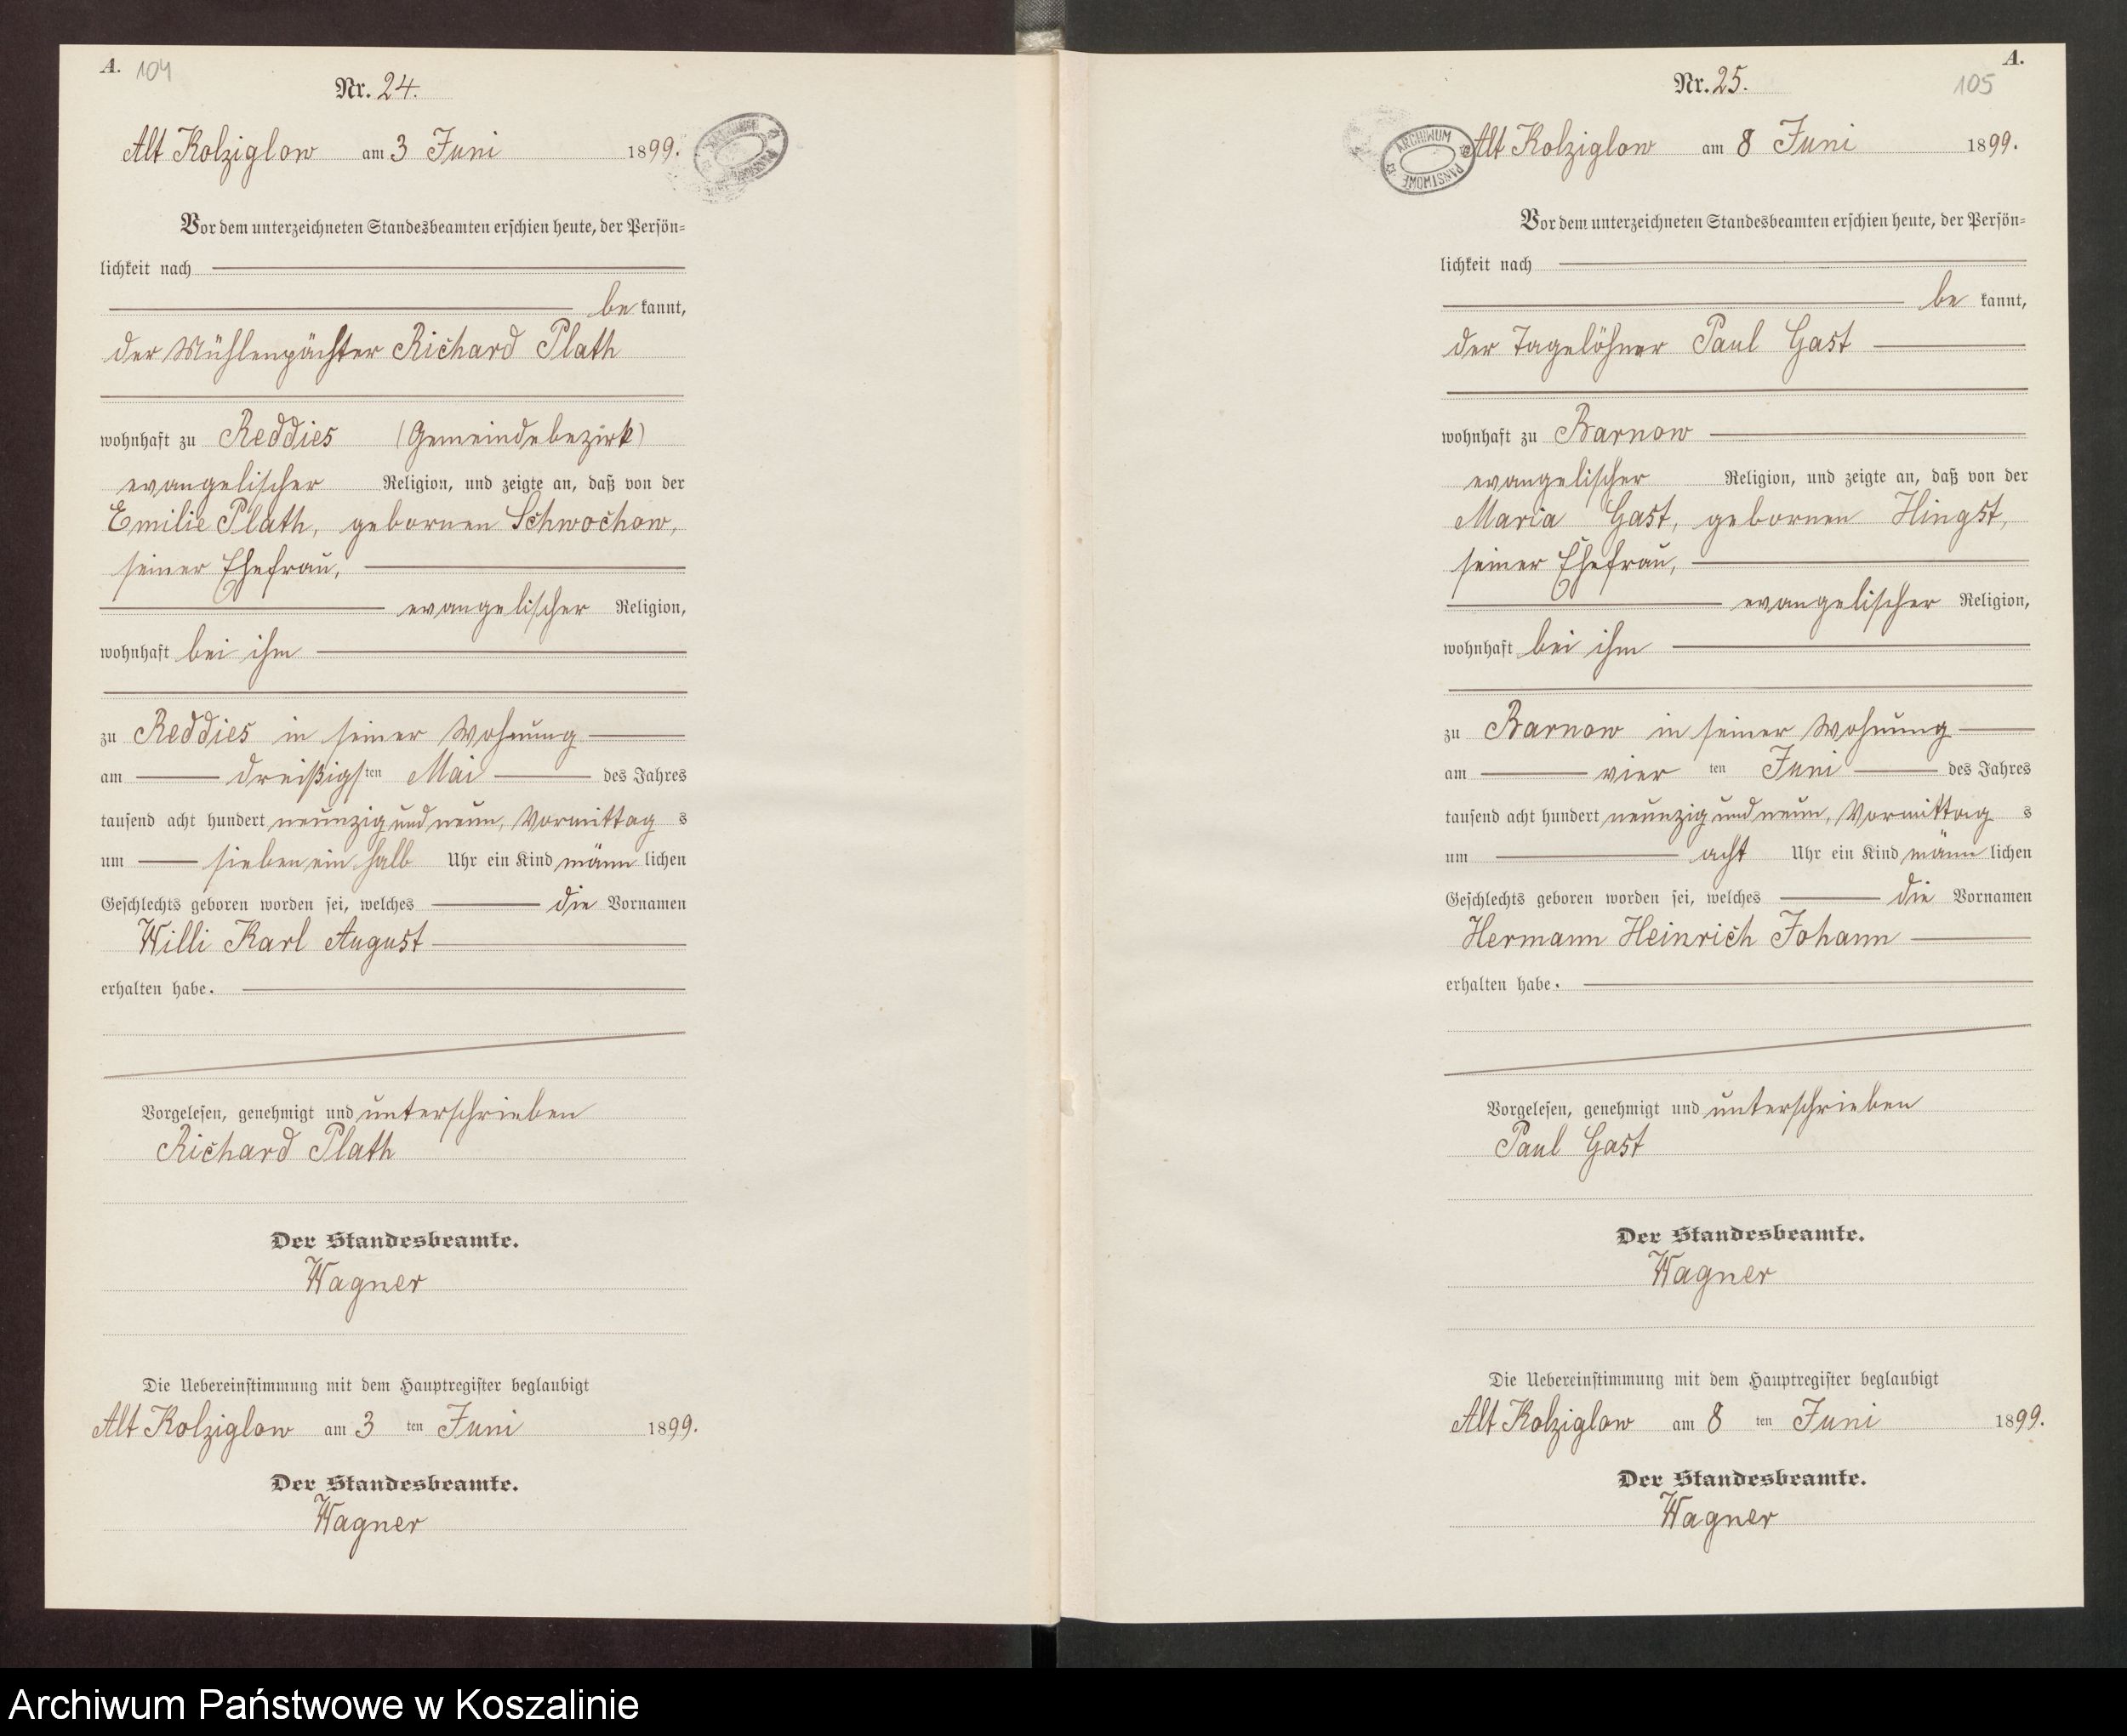 A. 104
Nr. 24.
Alt Kolziglow am 3 Juni 1899.
Vor dem unterzeichneten Standesbeamten erschien heute, der Persön-
lichkeit nach
be kannt,
der Mühlenpächter Richard Plath
wohnhaft zu Reddies (Gemeindebezirk)
evangelischer Religion, und zeigte an, daß von der
Emilie Plath, gebornen Schwochow,
seiner Ehefrau,
evangelischer Religion,
wohnhaft bei ihm
zu Reddies in seiner Wohnung
am dreißigsten Mai des Jahres
tausend acht hundert neunzig und neun, Vormittag s
um sieben ein halb Uhr ein Kind männ lichen
Geschlechts geboren worden sei, welches die Vornamen
Willi Karl August
erhalten habe.
Vorgelesen, genehmigt und unterschrieben
Richard Plath
Der Standesbeamte.
Wagner
Die Uebereinstimmung mit dem Hauptregister beglaubigt
Alt Kolziglow am 3 ten Juni 1899.
Der Standesbeamte.
Wagner
A.
105
Nr. 25.
ARCHIWUM PAŃSTWOWE
Alt Kolziglow am 8 Juni 1899.
Vor dem unterzeichneten Standesbeamten erschien heute, der Persön-
lichkeit nach
be kannt,
der Tagelöhner Paul Gast
wohnhaft zu Barnow
evangelischer Religion, und zeigte an, daß von der
Maria Gast, gebornen Hingst,
seiner Ehefrau,
evangelischer Religion,
wohnhaft bei ihm
zu Barnow in seiner Wohnung
am vier ten Juni des Jahres
tausend acht hundert neunzig und neun, Vormittag s
um acht Uhr ein Kind männ lichen
Geschlechts geboren worden sei, welches die Vornamen
Hermann Heinrich Johann
erhalten habe.
Vorgelesen, genehmigt und unterschrieben
Paul Gast
Der Standesbeamte.
Wagner
Die Uebereinstimmung mit dem Hauptregister beglaubigt
Alt Kolziglow am 8 ten Juni 1899.
Der Standesbeamte.
Wagner
Archiwum Państwowe w Koszalinie